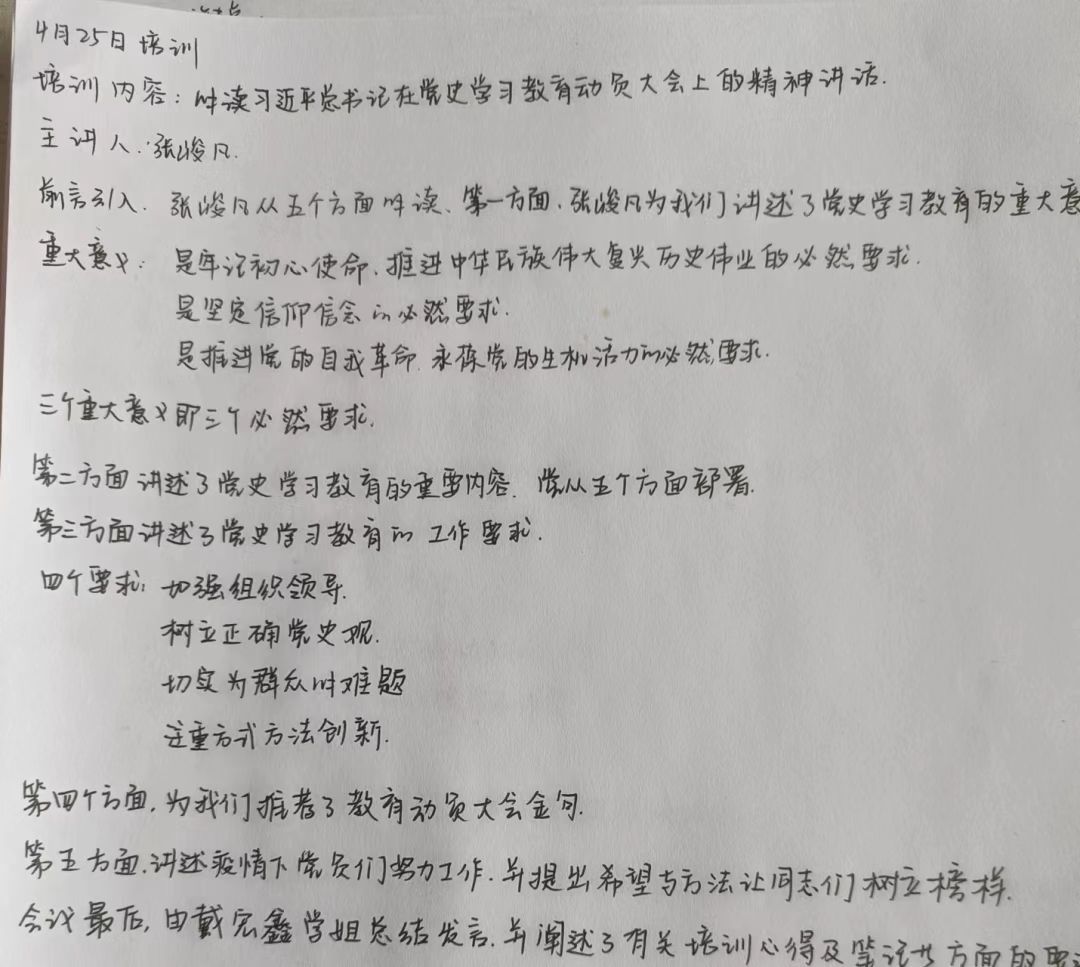 4月25日培训
培训内容:解读习近平总书记在党史学习教育动员大会上的精神讲话.
主讲人:张峻凡.
前言引入.张峻凡从五个方面解读、第一方面.张峻凡为我们讲述了党史学习教育的重大意
重大意义:是牢记初心使命、推进中华民族伟大复兴历史伟业的必然要求.
是坚定信仰信念的必然要求.
是推进党的自我革命、永葆党的生机活力的必然要求.
三个重大意义即三个必然要求.
第二方面讲述了党史学习教育的重要内容.党从五个方面部署.
第三方面讲述了党史学习教育的工作要求.
四个要求:加强组织领导.
树立正确党史观.
切实为群众解难题
注重方式方法创新.
第四个方面,为我们推荐了教育动员大会金句.
第五方面.讲述疫情下党员们努力工作.并提出希望与方法让同志们树立榜样.
会议最后,由戴宏鑫学姐总结发言.并阐述了有关培训心得及笔记书方面的要